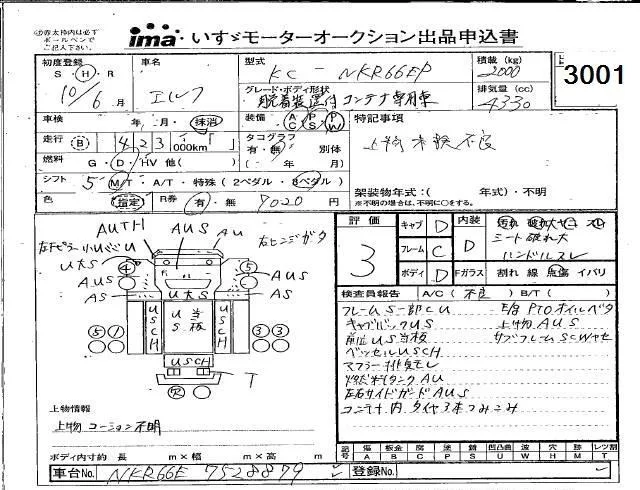 ㊟赤太枠内は必ず
ボールペンで
ご記入下さい。
ima いすゞモーターオークション出品申込書
初度登録 車名 型式 KC-NKR66EP 積載(kg) 2000
S・H・R エルフ グレード・ボディ形状 排気量(cc) 4330
10/6月 脱着装置付コンテナ専用車
3001
車検 年 月・抹消 装備 AC PS PW 特記事項
走行 B 423,000km タコグラフ 有・無 別体 上物未検不良
燃料 G・D・HV 他( ) 年 月
シフト 5 M/T・A/T・特殊(2ペダル・3ペダル) 架装物年式:( 年式)・不明
色 指定 R券 有・無 7020円 ※不明の場合は、不明に○をする。
評価 3
キャブ D 内装 D
フレーム C シート破れ大 ハンドルスレ
ボディ D Fガラス 割れ 線 飛傷 イバリ
AUTH AUS AU
左ドピラー小リペU 右ヒンジガタ
U大S ④ ⑤
AUS AUS
AS U大S AS
USCH U S 当板 USCH
⑤ ① ③ ③
USCH
T
検査員報告 A/C(不良) B/T( )
フレームS一部CU E/g PTOオイルベタ
キャブバックUS 上物AUS
前位US当板 サブフレームSCWサセ
ベッセルUSCH
マフラー排気モレ
燃料タンクAU
左右サイドガードAUS
コンテナ内 タイヤ3本つみこみ
上物情報
上物 コーション不明
ボディ内寸約 長 m×幅 m×高 m
記号 傷A 板金B 腐C 塗P 錆S 凹凸曲U 波W 穴H 跡M レツ割T
車台No. NKR66E 7528879 登録No.